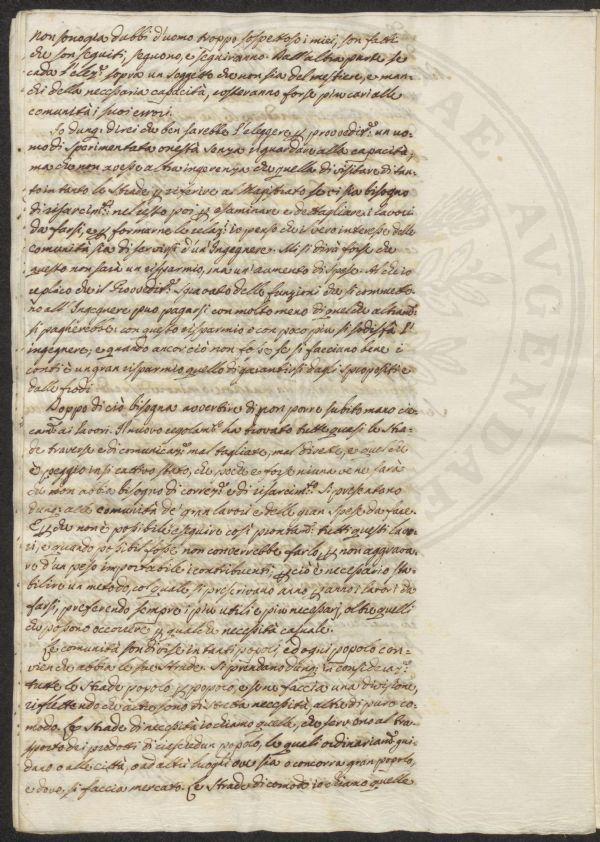 Non sono già dubbi d'uomo troppo sospettoso i miei, son fatti
che son seguiti, seguono, e seguiranno. Dall'altra parte se
cada l'elez.e sopra un soggetto che non sia del mestiere, e man-
chi della necessaria capacità, costeranno forse più cari alle
comunità i suoi errori.
Io dunq. direi che ben sarebbe l'eleggere p provvedit.e un uo-
mo di sperimentata onestà senza riguardare alla capacità,
ma che non avesse altra ingerenza che quella di visitare di tan-
to in tanto le strade, p riferire al Magistrato se ci sia bisogno
di risarcim.ti nel resto poi p esaminare e dettagliare i lavori
da farsi, e p formarne le relaz.i io penso che il vero interesse delle
comunità sia di servirsi d'un Ingegnere. Mi si dirà forse che
questo non sarà un risparmio, ma un aumento di spese. Al che io
replico che il Provvedit.e sgravato delle funzioni che si commetto-
no all'Ingegnere può pagarsi con molto meno di quello che altram.ti
si pagherebbe: con questo risparmio e con poco più si sodisfà l'
ingegnere, e quando ancor ciò non fosse se si facciano bene i
conti è un gran risparmio quello di garantirsi dagli spropositi e
dalle frodi.
Doppo di ciò bisogna avvertire di non porre subito mano cie-
cam.e ai lavori. Il nuovo regolam.to ha trovato tutte quasi le stra-
de traverse e di comunicaz.e mal tagliate, mal dirette, e quel che
è peggio in sì cattivo stato, che poche e forse niuna ve ne sarà
che non abbia bisogno di correz.e e di risarcim.to. Si presentano
dunq. alle comunità de' gran lavori e delle gran spese da fare.
E p che non è possibile eseguire così prontam.e tutti questi lavo-
ri, e quando possibil fosse non converrebbe farlo, p non aggrava-
re d'un peso importabile i contribuenti, p ciò è necessario sta-
bilire un metodo, col quale si prescrivano anno p anno i lavori da
farsi, preferendo sempre i più utili e più necessarj, oltre quelli
che possono occorrere p qualche necessità casuale.
Le comunità son divise in tanti popoli, ed ogni popolo con-
vien che abbia le sue strade. Si prendano dunq. in consideraz.e
tutte le strade popolo p popolo, e se ne faccia una divisione,
riflettendo che altre sono di stretta necessità, altre di puro co-
modo. Le strade di necessità io chiamo quelle, che servono al tra-
sporto dei prodotti di ciascedun popolo, le quali ordinariam.e gui-
dano o alle città, o ad altri luoghi ove sia o concorra gran popolo,
e dove si faccia mercato. Le strade di comodo io chiamo quelle